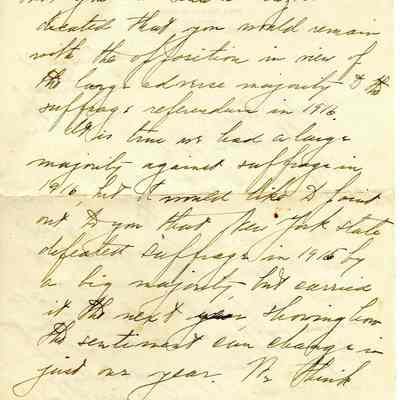 dicated that you would remain
with the opposition in view of
the large adverse majority to the
suffrage referendum in 1916
It is true we had a large
majority against suffrage in
1916, but I would like to point
out to you that New York state
defeated suffrage in 1915 by
a big majority, but carried
it the next year, showing how
the sentiment can change in
just one year. We think